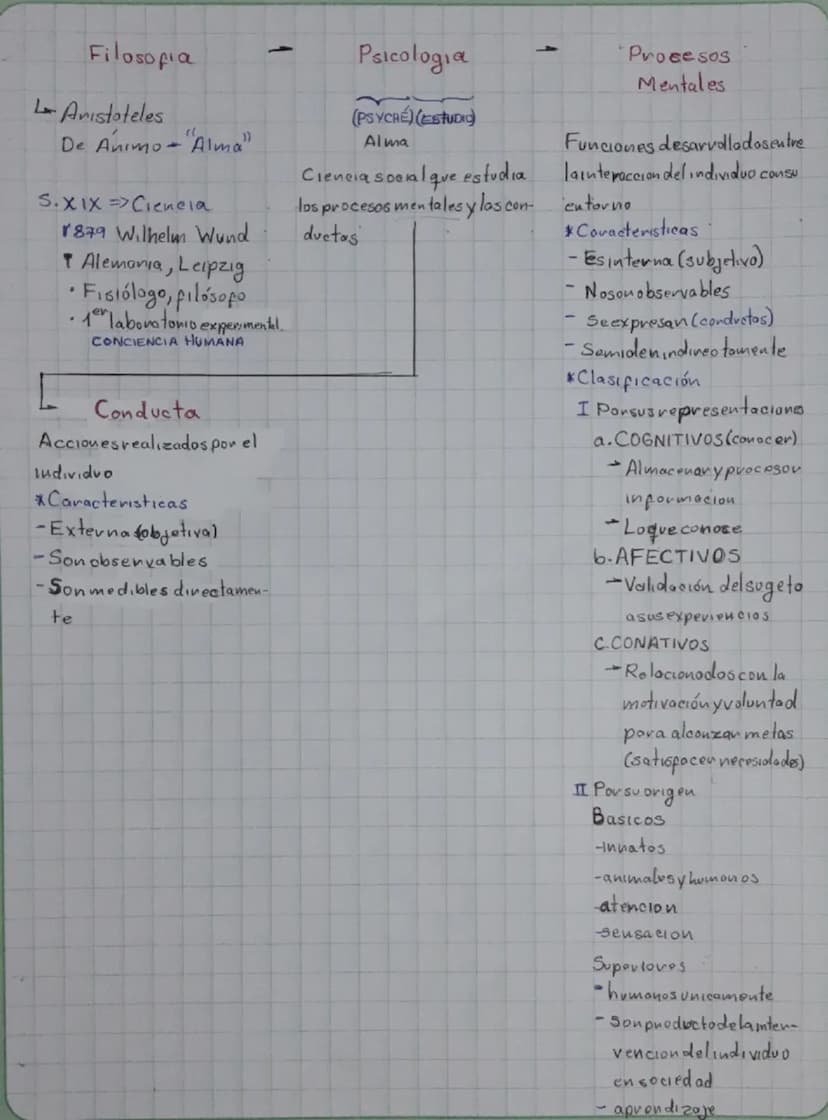 Filosofia - Psicologia - Procesos
Mentales
Aristoteles
De Ánimo - "Alma"
S. XIX => Ciencia
1879 Wilhelm Wund
Alemania, Leipzig
• Fisiólogo, filósofo
• 1er laboratorio experimental
CONCIENCIA HUMANA
(PSYCHÉ) (ESTUDIO)
Alma
Ciencia social que estudia
los procesos mentales y las con-
ductas
Conducta
Acciones realizados por el
individuo
*Caracteristicas
- Externa (objetiva)
- Son observables
- Son medibles directamen-
te
Funciones desarrollados entre
la interaccion del individuo con su
entorno
*Caracteristicas
- Es interna (subjetivo)
- No son observables
- Se expresan (conductas)
- Se miden indirectamente
*Clasificación
I Por sus representaciones
a. COGNITIVOS (conocer)
- Almacenar y procesar
informacion
- Lo que conose
b. AFECTIVOS
- Validación del sugeto
a sus experiencias
C. CONATIVOS
- Relacionados con la
motivación y voluntad
para alcanzar metas
(satisfacer necesidades)
II Por su origen
Basicos
- innatos
- animales y humanos
- atencion
- sensacion
Superiores
- humanos unicamente
- Son producto de la inter-
vencion del individuo
en sociedad
- aprendizaje